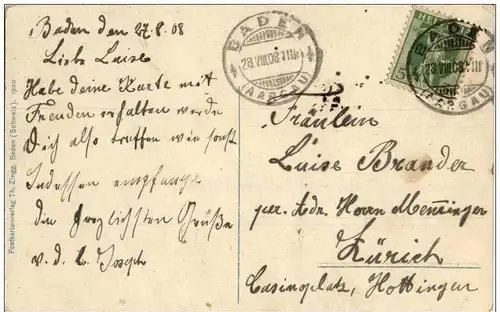 Baden den 27.8.08
Liebe Luise
Habe deine Karte mit
Freuden erhalten werde
Dich also treffen wie sonst
Indessen empfange
die herzlichsten Grüße
v. d. l. Joseph
Fräulein
Luise Brander
per. Adr. Herrn Menzinger
Zürich
Casinoplatz, Hottingen
BADEN
28.VIII.08
(AARGAU)
HEL
5
BADEN
28.VIII.08
(AARGAU)
Postkartenverlag Th. Zingg, Baden (Schweiz).